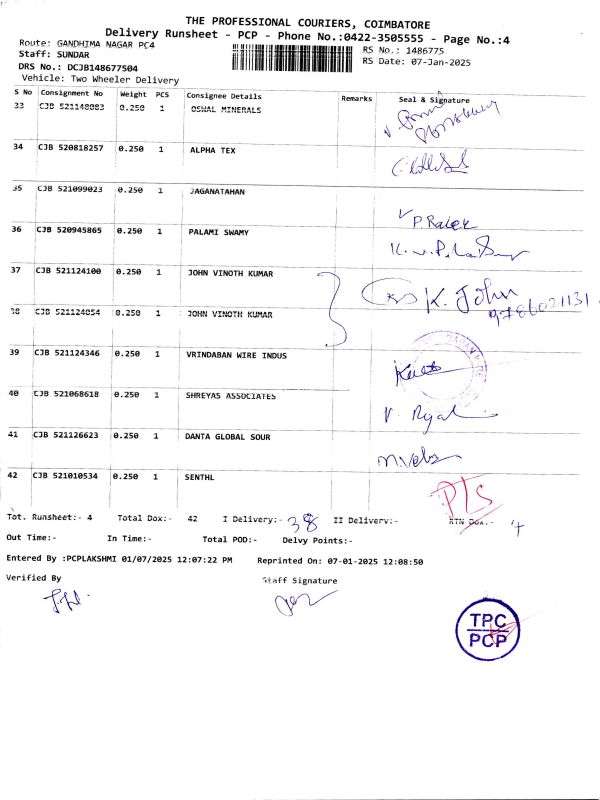 THE PROFESSIONAL COURIERS, COIMBATORE
Delivery Runsheet - PCP - Phone No.:0422-3505555 - Page No.:4
Route: GANDHIMA NAGAR PC4
Staff: SUNDAR
DRS No.: DCJB148677504
Vehicle: Two Wheeler Delivery
RS No.: 1486775
RS Date: 07-Jan-2025
S No Consignment No Weight PCS Consignee Details Remarks Seal & Signature
33 CJB 521148083 0.250 1 OSWAL MINERALS
34 CJB 520818257 0.250 1 ALPHA TEX
35 CJB 521099023 0.250 1 JAGANATAHAN
P. Rajek
36 CJB 520945865 0.250 1 PALAMI SWAMY
37 CJB 521124100 0.250 1 JOHN VINOTH KUMAR
K. John
9786021131
38 CJB 521124054 0.250 1 JOHN VINOTH KUMAR
39 CJB 521124346 0.250 1 VRINDABAN WIRE INDUS
40 CJB 521068618 0.250 1 SHREYAS ASSOCIATES
41 CJB 521126623 0.250 1 DANTA GLOBAL SOUR
42 CJB 521010534 0.250 1 SENTHL
Tot. Runsheet:- 4 Total Dox:- 42 I Delivery:- 38 II Delivery:- RTN Dox.- 4
Out Time:- In Time:- Total POD:- Delvy Points:-
Entered By :PCPLAKSHMI 01/07/2025 12:07:22 PM Reprinted On: 07-01-2025 12:08:50
Verified By Staff Signature
TPC
PCP